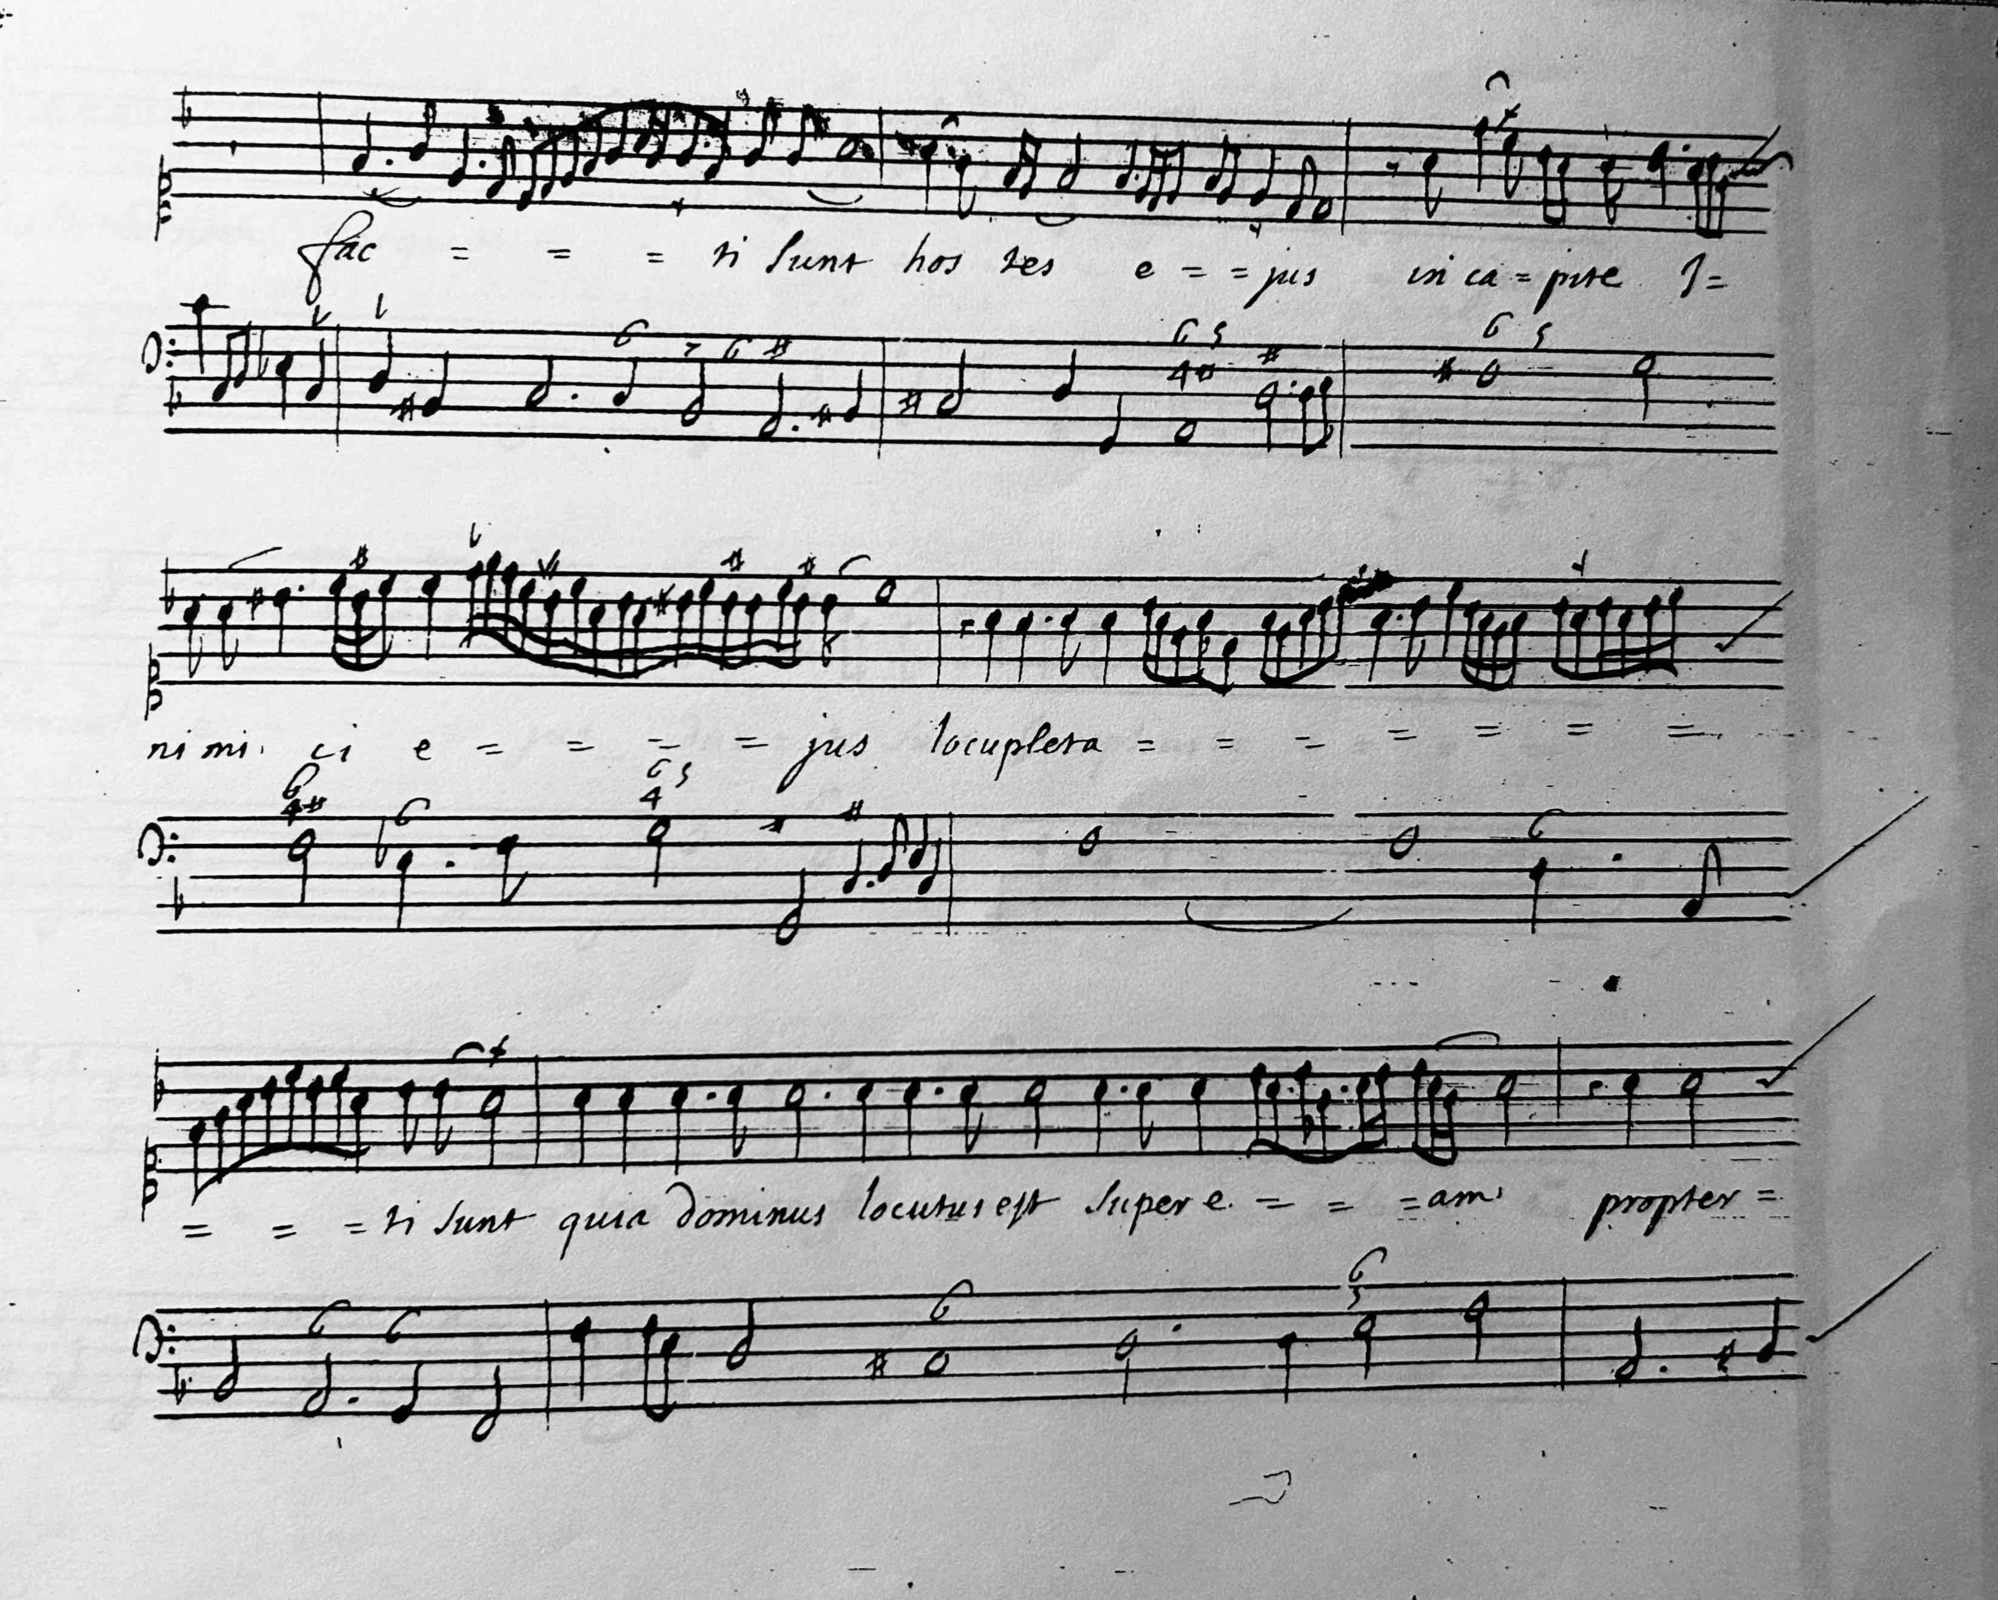 fac = = = ti sunt hos tes e = = jus in ca = pite I =
ni mi ci e = = = = jus locupleta = = = = = = =
= = = ti sunt quia dominus locutus est super e = = = am propter =